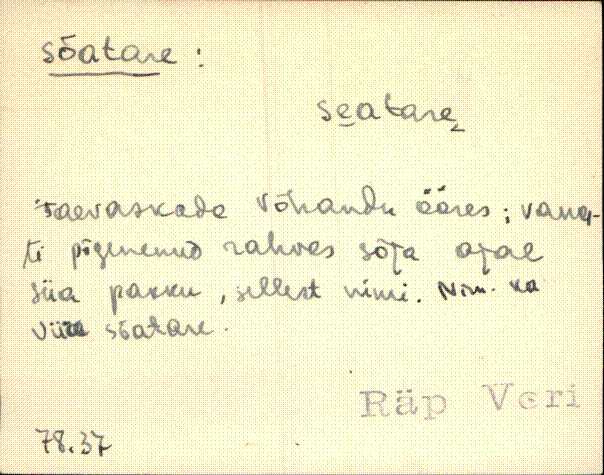 sõatare :
seatare
taevaskoda Võhandu ääres; vanas-
ti põgenenud rahvas sõja ajal
siia pakku, sellest nimi. Nim. ka
sõatare.
Räp Veri
78.37